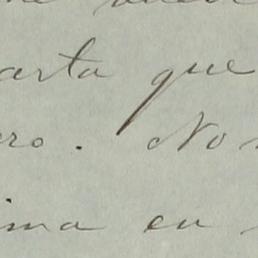 arta que
ero. No
ima en